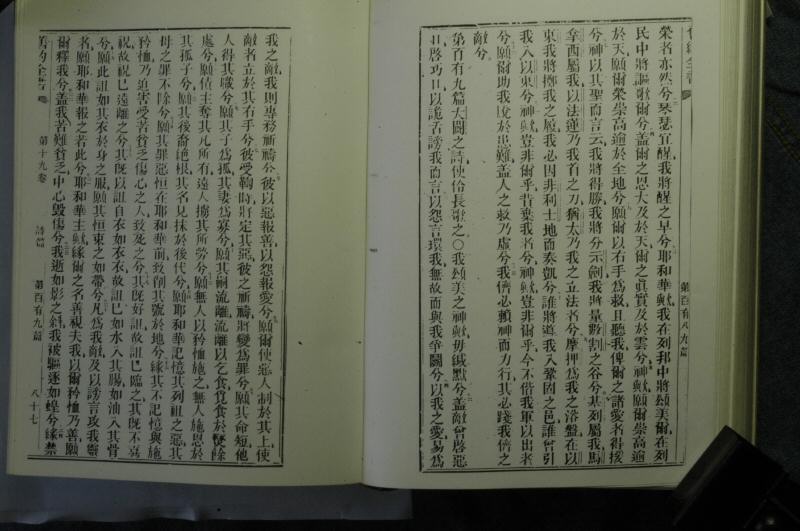 舊約全書
榮者亦然兮琴瑟宜醒我將醒之早兮耶和華歟我在列邦中將頌美爾在列
民中將謳歌爾兮蓋爾之恩大及於天爾之真實及於雲兮神歟願爾崇高逾
於天願爾榮崇高逾於全地兮願爾以右手為救且聽我俾爾之諸愛者得援
兮神以其聖而言云我將得勝我將分示劍我將量數割之谷兮基列屬我馬
拿西屬我以法蓮乃我首之力猶太乃我之立法者兮摩押為我之浴盤在以
東我將擲我之履我必因非利士地而奏凱兮誰將導我入鞏固之邑誰曾引
我入以東兮神歟豈非爾乎昔棄我者兮神歟豈非爾乎今不偕我軍以出者
兮願爾助我脫於患難蓋人之救乃虛兮我儕必賴神而力行其必踐我儕之
敵兮
第百有九篇大闢之詩使伶長歌之○我頌美之神歟毋緘默兮蓋敵曾啓惡
口啓巧口以謊舌謗我而言以怨言環我無故而與我爭鬬兮以我之愛易為
第百有八九篇
我之敵我則專務祈禱兮彼以惡報善以怨報愛兮願爾使惡人制於其上使
敵者立於其右手兮彼受鞫時將定其惡彼之祈禱將變為罪兮願其命短他
人得其職兮願其子為孤其妻為寡兮願其嗣流離流離以乞食覓食於墟除
處兮願債主奪其凡所有遠人擄其所勞兮願無人以矜恤施之無人施恩於
其孤子兮願其後裔絕根其名見抹於後代兮願耶和華記憶其列祖之惡其
母之罪不除兮願其罪惡恒在耶和華前致削其號於地兮緣其不記憶與施
矜恤乃迫害受苦貧乏傷心之人致死之兮其既好詛故詛已臨之其既不喜
祝故祝已遠離之兮其既以詛自衣如衣衣故詛已如水入其腸如油入其骨
兮願此詛如其衣於身之服願其恒束之如帶兮凡為我敵及以謗言攻我靈
者願耶和華報之若此兮耶和華主歟緣爾之名善視夫我以爾矜恤乃善願
爾釋我兮蓋我苦難貧乏中心毀傷兮我逝如影之斜我被驅逐如蝗兮緣禁
舊約全書
第十九卷
詩篇
第百有九篇
八十七